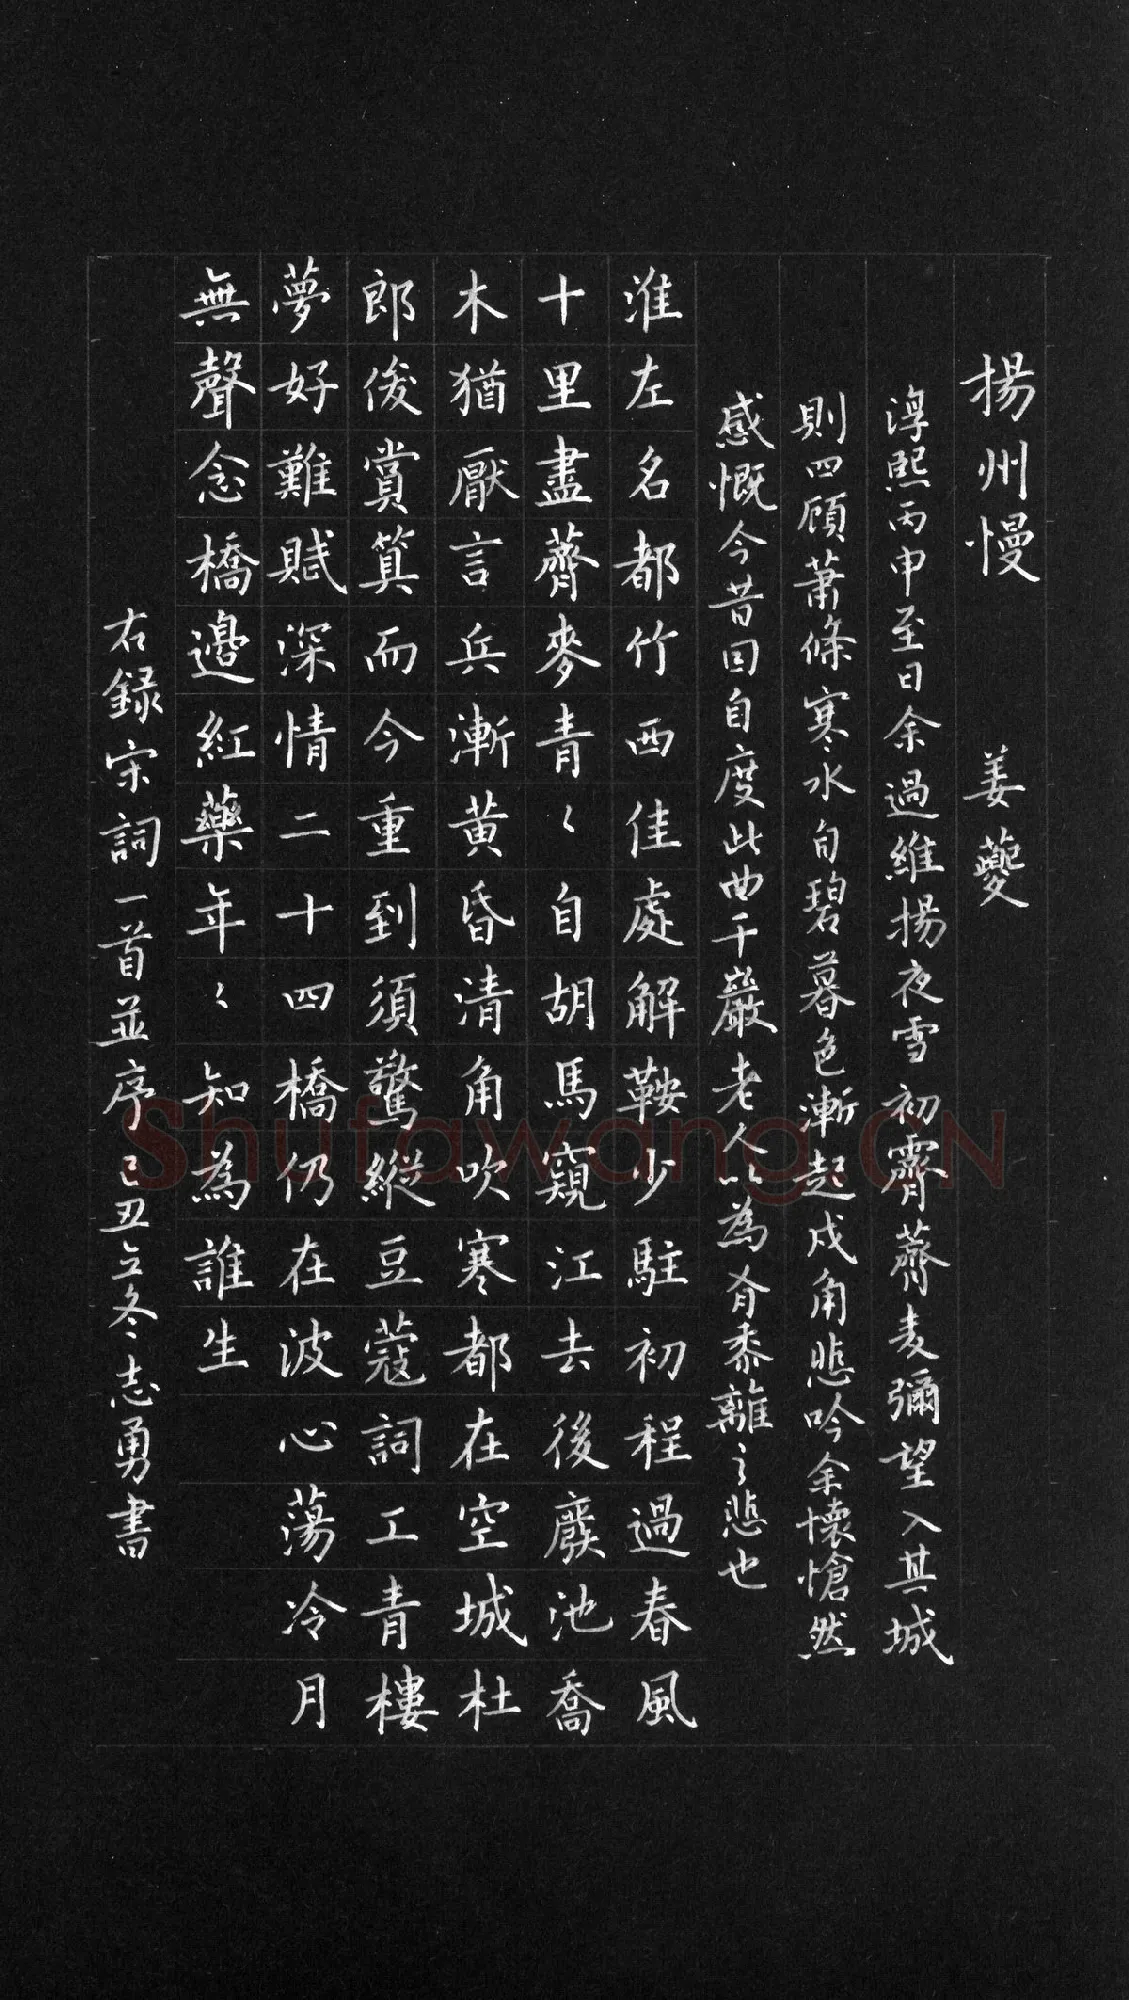 揚州慢　姜夔
淳熙丙申至日余過維揚夜雪初霽薺麦彌望入其城
則四顧蕭條寒水自碧暮色漸起戍角悲吟余懷愴然
感慨今昔因自度此曲千巖老人以為有黍離之悲也
淮左名都竹西佳處解鞍少駐初程過春風
十里盡薺麥青〻自胡馬窺江去後廢池喬
木猶厭言兵漸黃昏清角吹寒都在空城杜
郎俊賞算而今重到須驚縱豆蔻詞工青樓
夢好難賦深情二十四橋仍在波心蕩冷月
無聲念橋邊紅藥年〻知為誰生
右録宋詞一首並序己丑立冬志勇書
Shufawang.CN